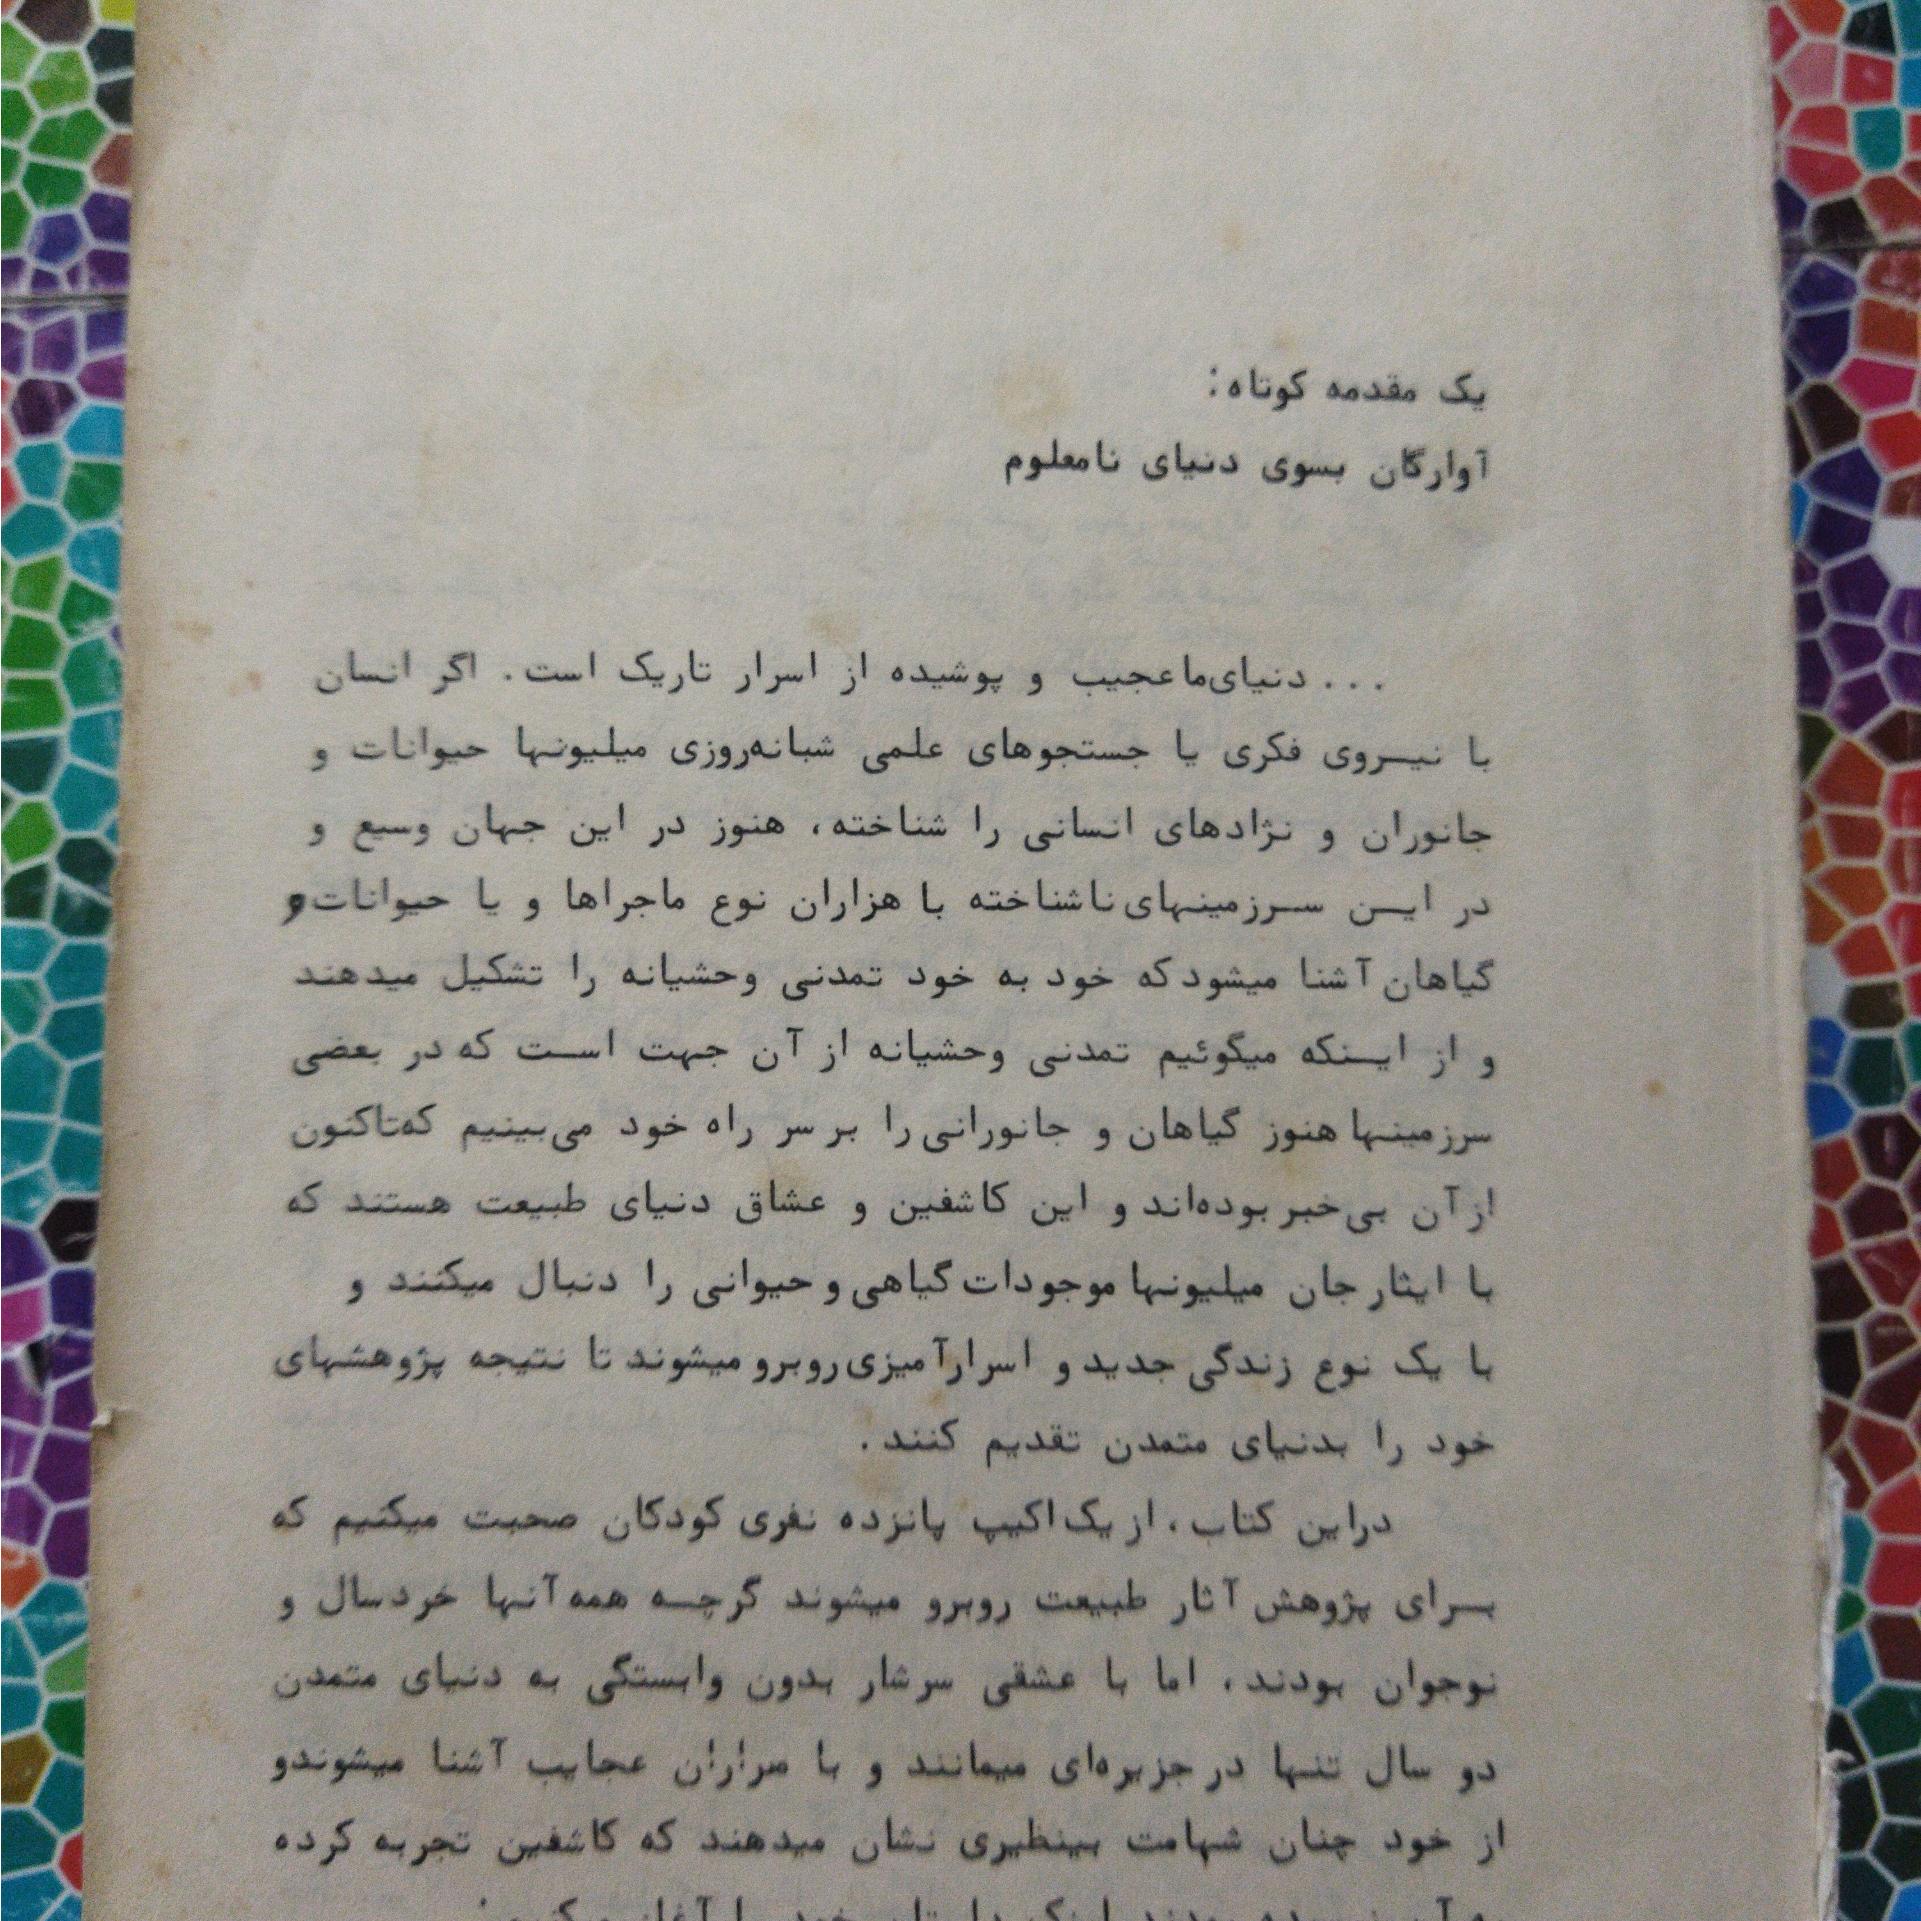 یک مقدمه کوتاه:
آوارگان بسوی دنیای نامعلوم
... دنیای‌ما عجیب و پوشیده از اسرار تاریک است. اگر انسان
با نیــروی فکری یا جستجوهای علمی شبانه‌روزی میلیونها حیوانات و
جانوران و نژادهای انسانی را شناخته، هنوز در این جهان وسیع و
در ایــن ســرزمینهای ناشناخته با هزاران نوع ماجراها و یا حیوانات و
گیاهان آشنا میشود که خود به خود تمدنی وحشیانه را تشکیل میدهند
و از ایــنکه میگوئیم تمدنی وحشیانه از آن جهت اســت که در بعضی
سرزمینها هنوز گیاهان و جانورانی را بر سر راه خود می‌بینیم که‌تاکنون
از آن بی‌خبر بوده‌اند و این کاشفین و عشاق دنیای طبیعت هستند که
با ایثار جان میلیونها موجودات گیاهی و حیوانی را دنبال میکنند و
با یک نوع زندگی جدید و اسرارآمیزی روبرو میشوند تا نتیجه پژوهشهای
خود را بدنیای متمدن تقدیم کنند.
دراین کتاب، از یک اکیپ پانزده نفری کودکان صحبت میکنیم که
بــرای پژوهش آثار طبیعت روبرو میشوند گرچــه همه آنها خردسال و
نوجوان بودند، اما با عشقی سرشار بدون وابستگی به دنیای متمدن
دو سال تنها در جزیره‌ای میمانند و با هزاران عجایب آشنا میشوندو
از خود چنان شهامت بینظیری نشان میدهند که کاشفین تجربه کرده